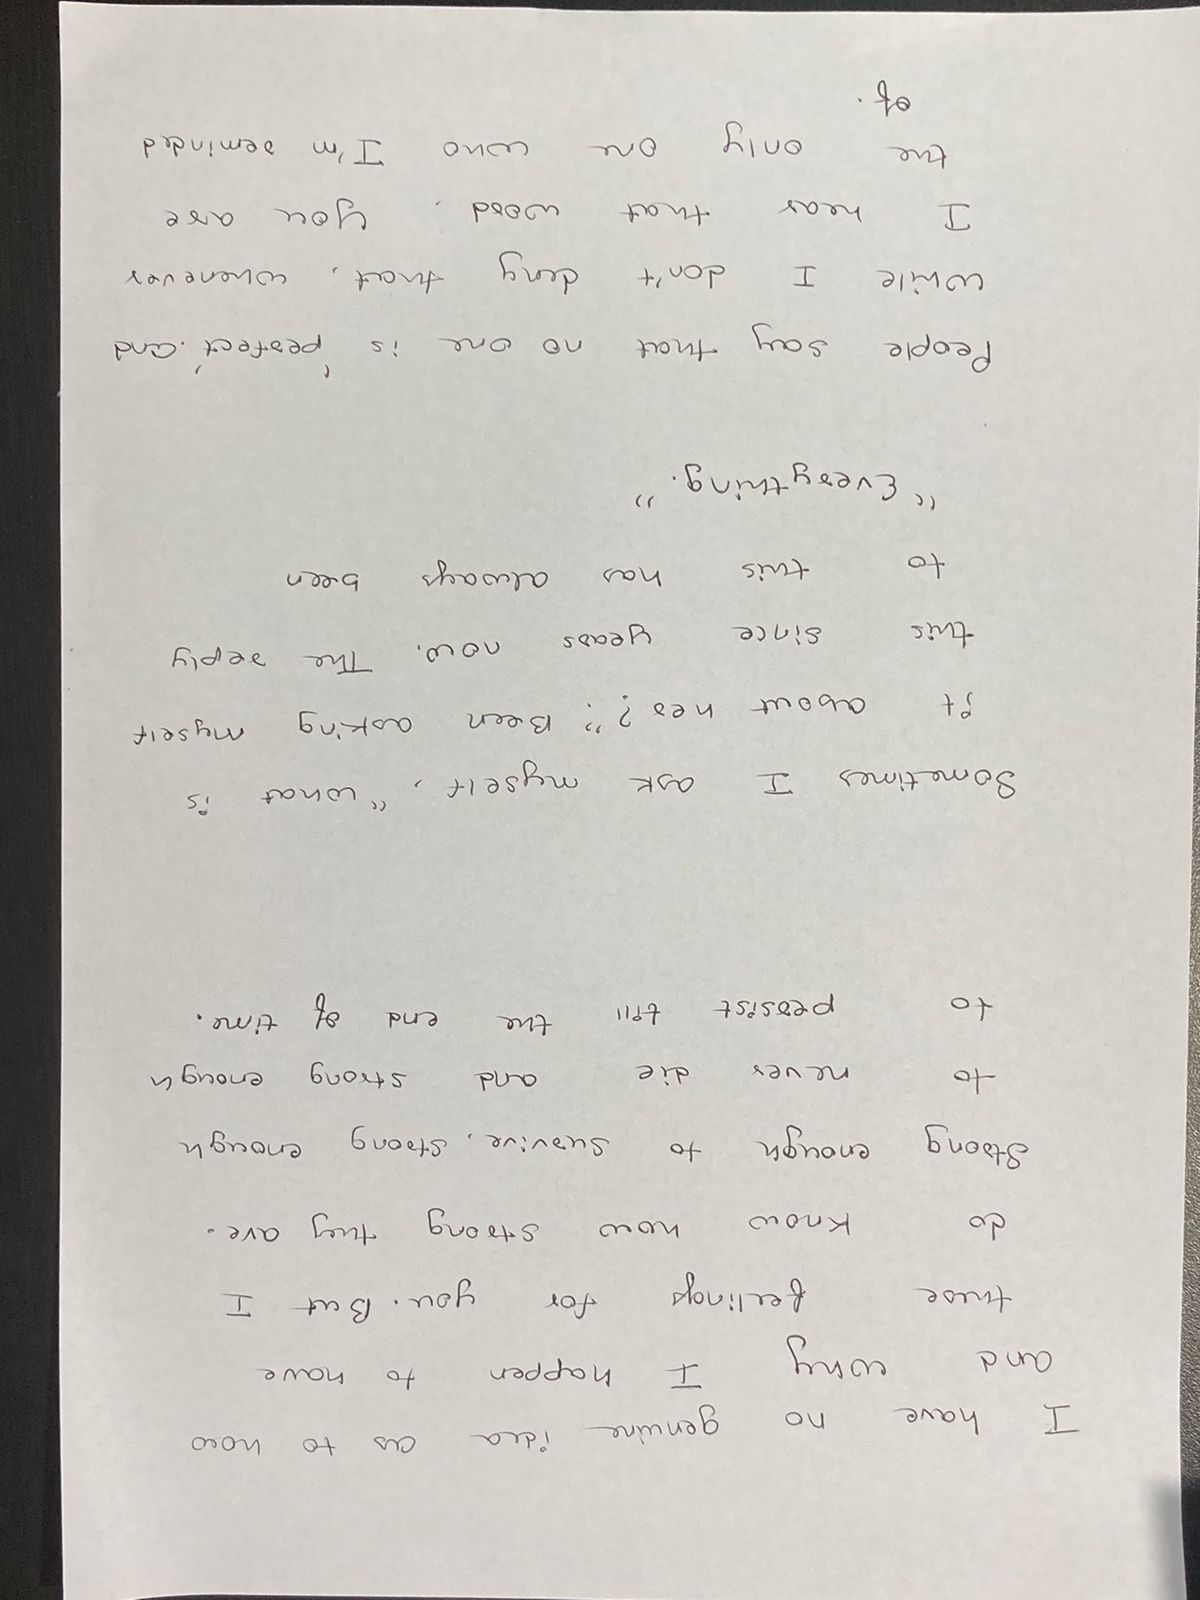 I have no genuine idea as to how
and why I happen to have
these feelings for you. But I
do know how strong they are.
Strong enough to survive, strong enough
to never die and strong enough
to persist till the end of time.
Sometimes I ask myself, "what is
it about her?". Been asking myself
this since years now. The reply
to this has always been
"Everything."
People say that no one is 'perfect'. and
while I don't deny that, whenever
I hear that word, you are
the only one who I'm reminded
of.